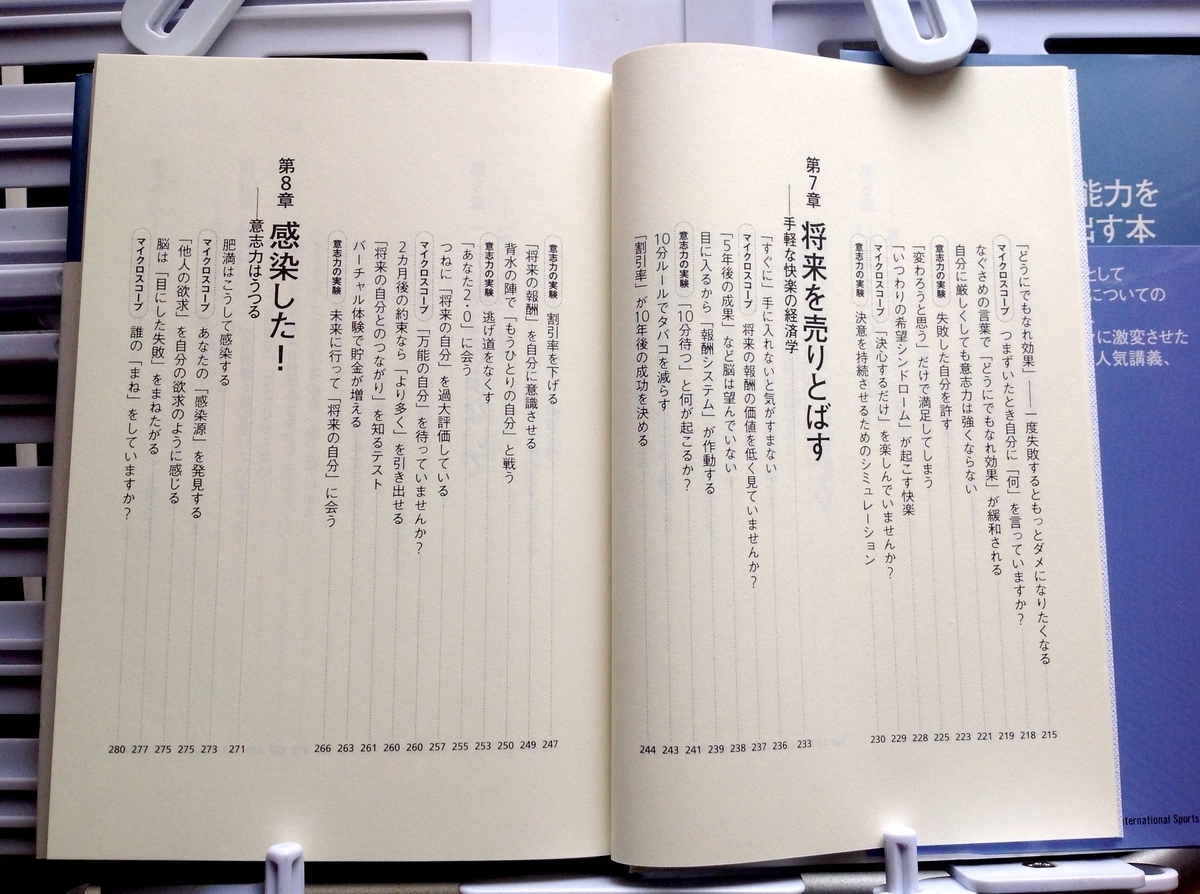 「どうにでもなれ効果」——一度失敗するともっとダメになりたくなる 215
マイクロスコープ つまずいたとき自分に「何」を言っていますか？ 218
なぐさめの言葉で「どうにでもなれ効果」が緩和される 219
自分に厳しくしても意志力は強くならない 221
意志力の実験 失敗した自分を許す 223
「変わろうと思う」だけで満足してしまう 225
「いつわりの希望シンドローム」が起こす快楽 228
マイクロスコープ 「決心するだけ」を楽しんでいませんか？ 229
意志力の実験 決意を持続させるためのシミュレーション 230
第7章 将来を売りとばす
——手軽な快楽の経済学 233
「すぐに」手に入れないと気がすまない 236
マイクロスコープ 将来の報酬の価値を低く見ていませんか？ 237
「5年後の成果」など脳は望んでいない 238
目に入るから「報酬システム」が作動する 239
意志力の実験 「10分待つ」と何が起こるか？ 241
10分ルールでタバコを減らす 243
「割引率」が10年後の成功を決める 244
意志力の実験 割引率を下げる 247
「将来の報酬」を自分に意識させる 249
背水の陣で「もうひとりの自分」と戦う 250
意志力の実験 逃げ道をなくす 253
「あなた2・0」に会う 255
つねに「将来の自分」を過大評価している 257
マイクロスコープ 「万能の自分」を待っていませんか？ 260
2カ月後の約束なら「より多く」を引き出せる 260
「将来の自分とのつながり」を知るテスト 261
バーチャル体験で貯金が増える 263
意志力の実験 未来に行って「将来の自分」に会う 266
第8章 感染した！
——意志力はうつる 271
肥満はこうして感染する 273
マイクロスコープ あなたの「感染源」を発見する 275
「他人の欲求」を自分の欲求のように感じる 275
脳は「目にした失敗」をまねたがる 277
マイクロスコープ 誰の「まね」をしていますか？ 280
能力を
出す本
として
についての
に激変させた
人気講義、
International Sports